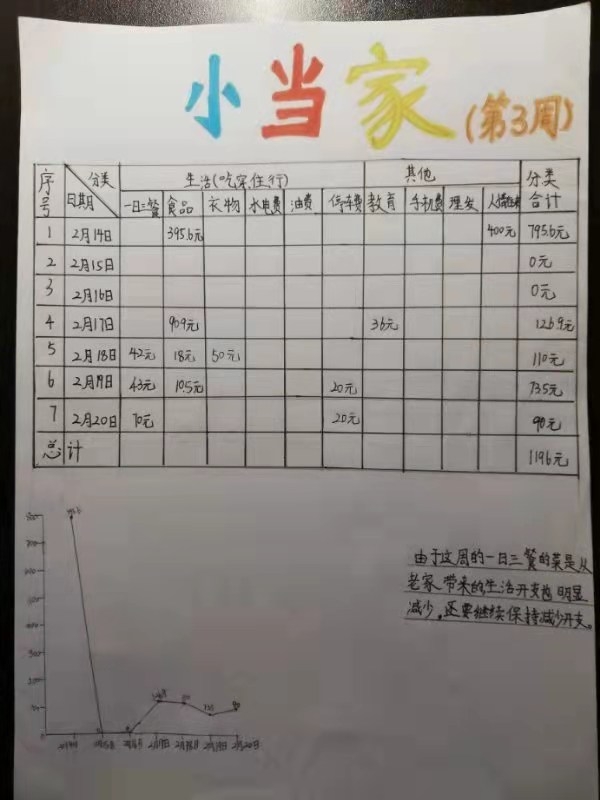 小当家
(第3周)
序号 分类 日期 生活(吃穿住行) 其他 分类合计
一日三餐 食品 衣物 水电费 油费 停车费 教育 手机费 理发
1 2月14日 395.6元 400元 795.6元
2 2月15日 0元
3 2月16日 0元
4 2月17日 90.9元 36元 126.9元
5 2月18日 42元 18元 50元 110元
6 2月19日 43元 10.5元 20元 73.5元
7 2月20日 70元 20元 90元
总计 1196元
由于这周的一日三餐的菜是从
老家带来的生活开支也明显
减少,还要继续保持减少开支。